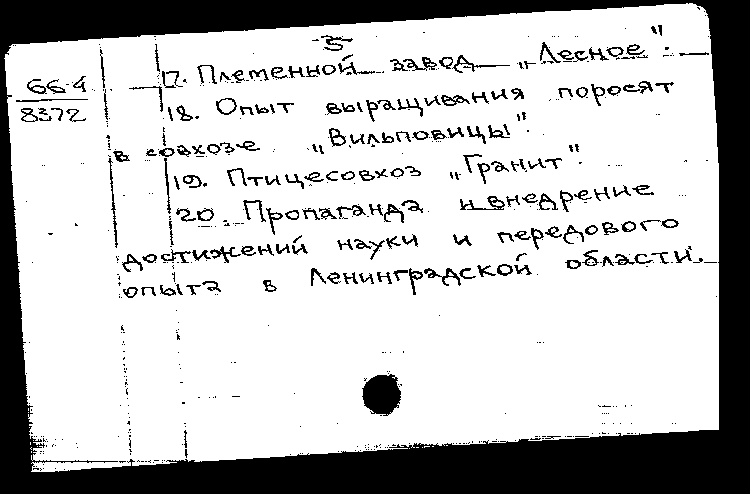 -5-
66-4
8372
17. Племенной завод „Лесное".
18. Опыт выращивания поросят
в совхозе „Вильповицы".
19. Птицесовхоз „Гранит".
20. Пропаганда и внедрение
достижений науки и передового
опыта в Ленинградской области.